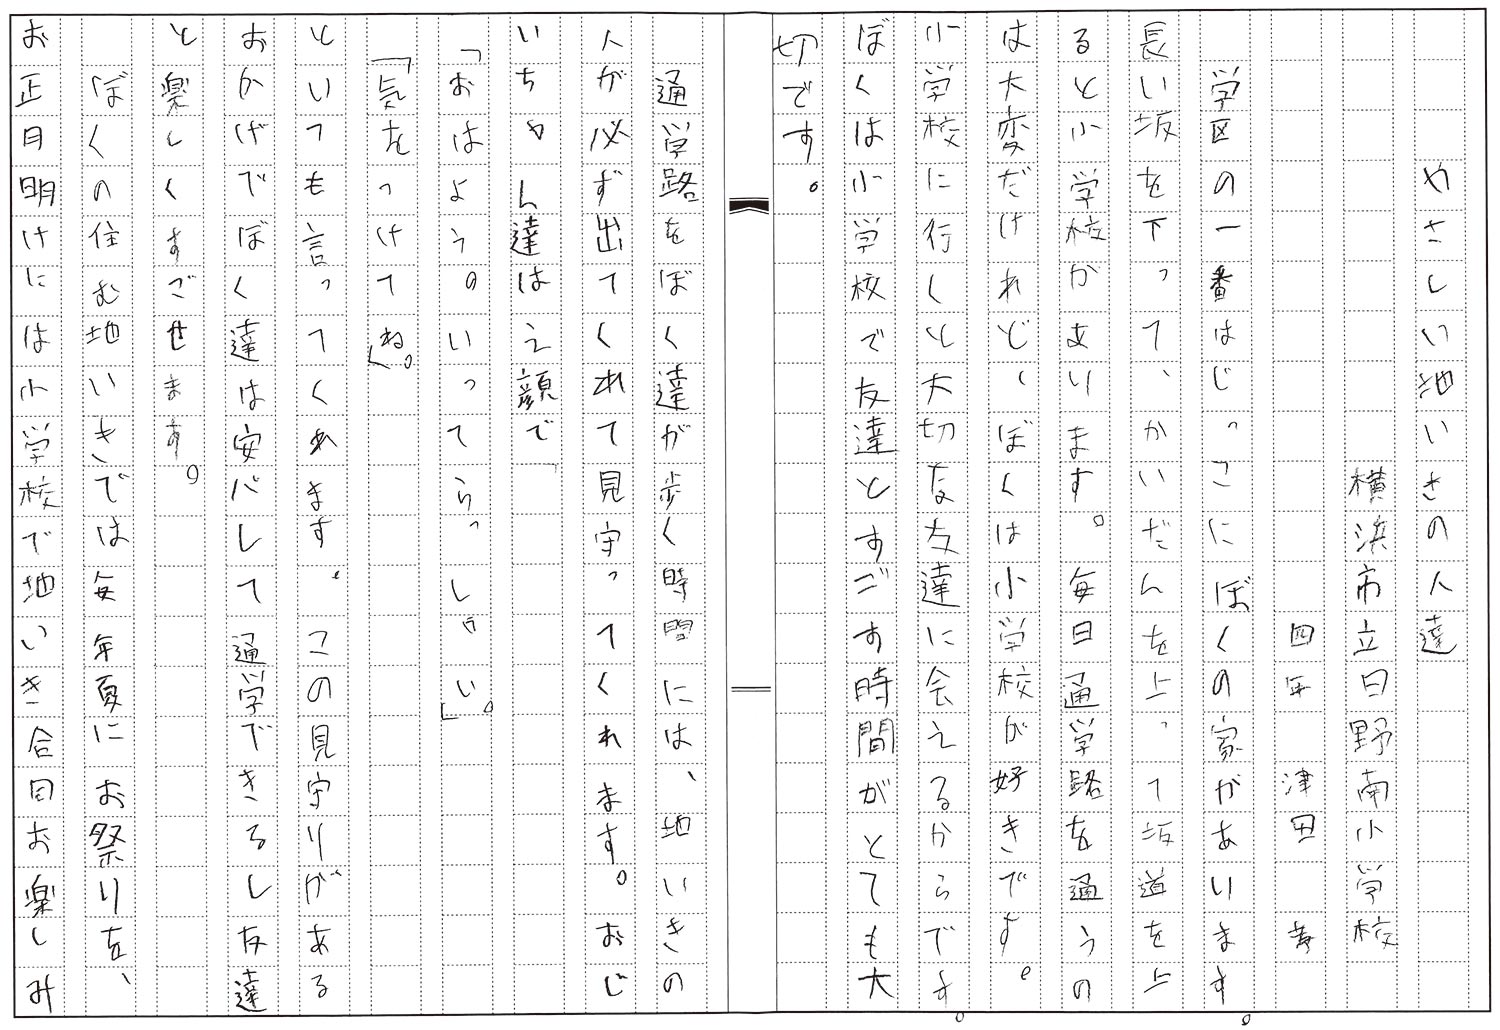 やさしい地いきの人達
横浜市立日野南小学校
四年 津田 考
学区の一番はじっこにぼくの家があります。
長い坂を下って、かいだんを上って坂道を上
ると小学校があります。毎日通学路を通うの
は大変だけれど、ぼくは小学校が好きです。
小学校に行くと大切な友達に会えるからです。
ぼくは小学校で友達とすごす時間がとても大
切です。
通学路をぼく達が歩く時間には、地いきの
人が必ず出てくれて見守ってくれます。おじ
いちゃん達はえ顔で
「おはよう。いってらっしゃい。」
「気をつけてね。」
といつも言ってくれます。この見守りがある
おかげでぼく達は安心して通学できるし友達
と楽しくすごせます。
ぼくの住む地いきでは毎年夏にお祭りを、
お正月明けには小学校で地いき合同お楽しみ